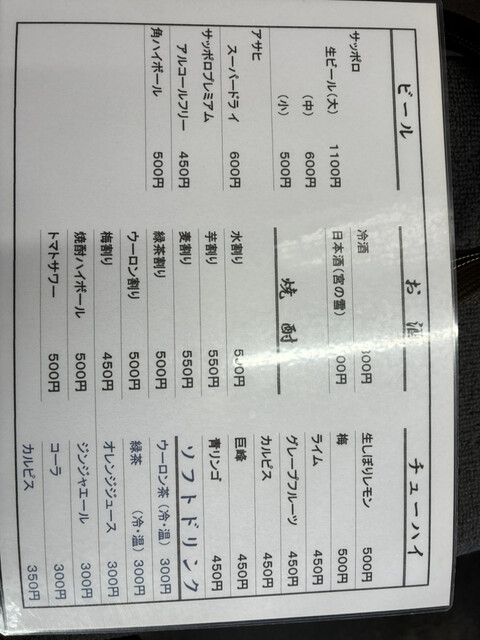 ビール
サッポロ
生ビール(大) 1100円
(中) 600円
(小) 500円
アサヒ
スーパードライ 600円
サッポロプレミアム
アルコールフリー 450円
角ハイボール 500円
お酒
冷酒
日本酒(宮の雪)
焼酎
水割り
芋割り 550円
麦割り 550円
緑茶割り 500円
ウーロン割り 500円
梅割り 450円
焼酎ハイボール 500円
トマトサワー 500円
チューハイ
生しぼりレモン 500円
梅 500円
ライム 450円
グレープフルーツ 450円
カルピス 450円
巨峰 450円
青リンゴ 450円
ソフトドリンク
ウーロン茶(冷・温) 300円
緑茶 (冷・温) 300円
オレンジジュース 300円
ジンジャエール 300円
コーラ 300円
カルピス 350円